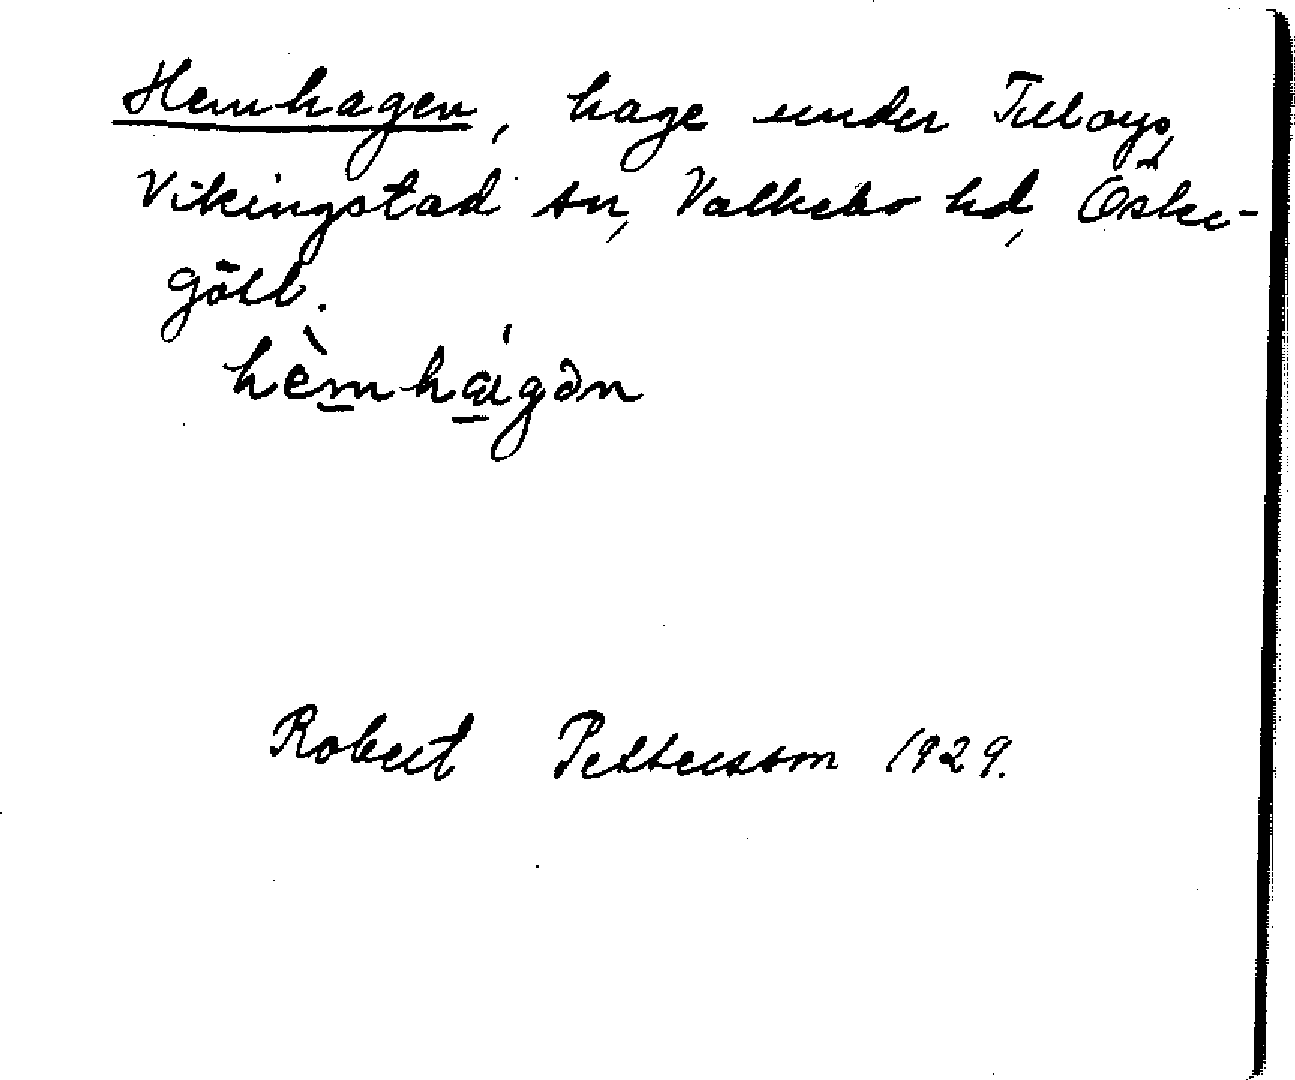 Hemhagen, hage under Tullbys,
Vikingstad sn, Valkebo hd, Öste-
götl.
hèmhágən
Robert Pettersson 1929.